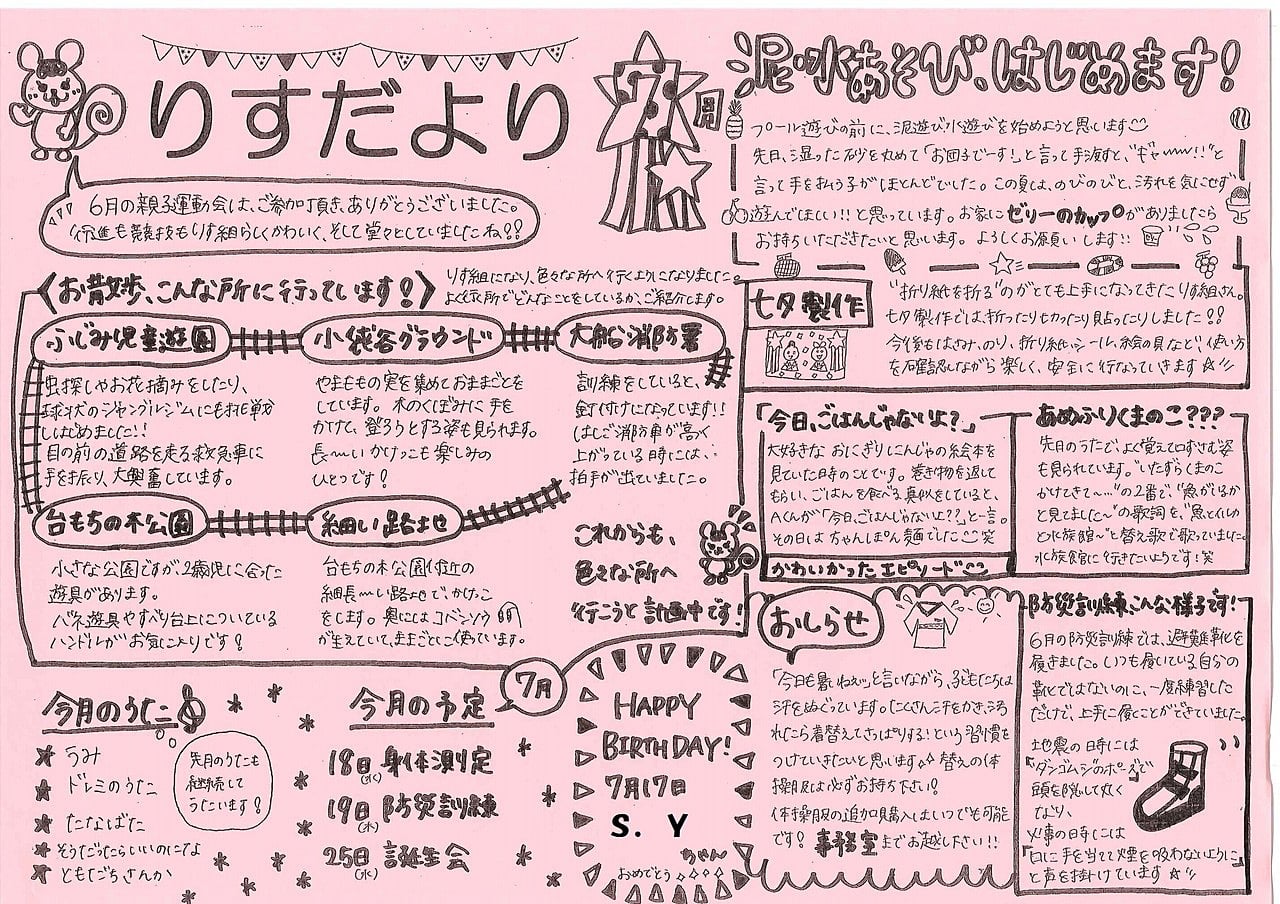 りすだより
7月
6月の親子運動会は、ご参加頂き、ありがとうございました。
行進も競技もりす組らしくかわいく、そして堂々としていましたね!!
泥水あそび、はじめます!
プール遊びの前に、泥遊び水遊びを始めようと思います
先日、湿った砂を丸めて「お団子でーす!」と言って手渡すと、"ギャーー!!"と
言って手を払う子がほとんどでした。この夏は、のびのびと、汚れを気にせず
遊んでほしい!!と思っています。お家にゼリーのカップがありましたら
お持ちいただきたいと思います。よろしくお願いします!!
〈お散歩、こんな所に行っています!〉
りす組になり、色々な所へ行くようになりました。
よく行く所でどんなことをしているか、ご紹介します。
ふじみ児童遊園
虫探しやお花摘みをしたり、
球状のジャングルジムにも挑戦
しはじめました!!
目の前の道路を走る救急車に
手を振り、大興奮しています。
小袋谷グラウンド
やまももの実を集めておままごとを
しています。木のくぼみに手を
かけて、登ろうとする姿も見られます。
長〜いかけっこも楽しみの
ひとつです!
大船消防署
訓練をしていると、
釘付けになっています!!
はしご消防車が高く
上がっている時には、
拍手が出ていました。
台もちの木公園
小さな公園ですが、2歳児に合った
遊具があります。
バネ遊具やすべり台上についている
ハンドルがお気に入りです!
細い路地
台もちの木公園付近の
細長〜い路地で、かけっこ
をします。奥にはコバンソウ
が生えていて、ままごとに使っています。
これからも、
色々な所へ
行こうと計画中です!
七夕製作
"折り紙を折る"のがとても上手になってきたりす組さん。
七夕製作では、折ったり切ったり貼ったりしました!!
今後もはさみ、のり、折り紙、シール、絵の具など、使い方
を確認しながら楽しく、安全に行なっていきます☆
「今日、ごはんじゃないよ?」
大好きなおにぎりにんじゃの絵本を
見ていた時のことです。巻き物を返して
もらい、ごはんを食べる真似をしていると、
Aくんが「今日、ごはんじゃないよ??」と一言。
その日はちゃんぽん麺でした 笑
かわいかったエピソード
あめふりくまのこ???
先日のうたで、よく覚えて口ずさむ姿
も見られています。"いたずらくまのこ
かけてきて〜…"の2番で、"魚がいるか
と見てました〜"の歌詞を、"魚とイルカ
と水族館〜"と替え歌で歌っていました。
水族館に行きたいようです!笑
おしらせ
「今日も暑いねぇ」と言いながら、子どもたちは
汗をぬぐっています。たくさん汗をかき、汚
れたら着替えてさっぱりする!という習慣を
つけていきたいと思います 替えの体
操服は必ずお持ち下さい!
体操服の追加購入はいつでも可能
です! 事務室までお越し下さい!!
防災訓練、こんな様子です!
6月の防災訓練では、避難靴を
履きました。いつも履いている自分の
靴ではないのに、一度練習した
だけで、上手に履くことができていました。
地震の日時には
「ダンゴムシのポーズ」で
頭を隠して丸く
なり、
火事の日時には
「口に手を当てて煙を吸わないように」
と声を掛けています☆
今月のうた
★ うみ
★ ドレミのうた
★ たなばた
★ そうだったらいいのにな
★ ともだちさんか
先月のうたも
継続して
うたいます!
今月の予定
7月
18日(水)身体測定
19日(木)防災訓練
25日(水)誕生会
HAPPY
BIRTHDAY!
7月17日
S. Y
ちゃん
おめでとう